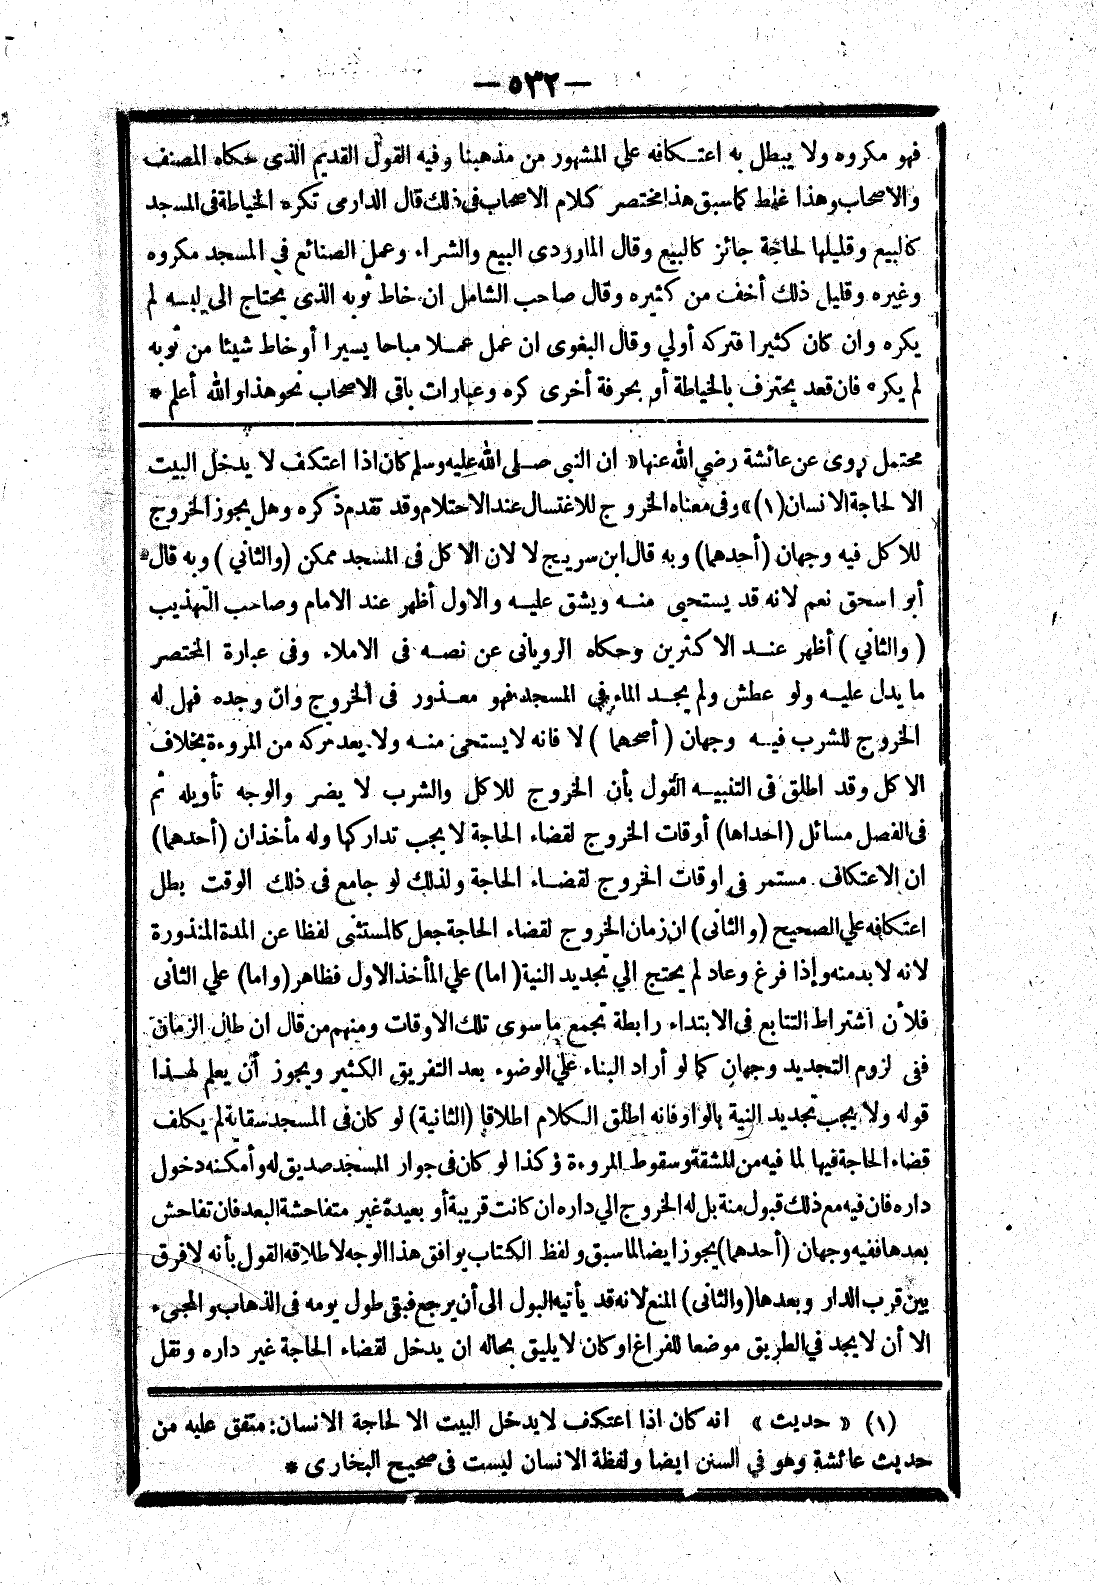 — ٥٣٢ —
فهو مكروه ولا يبطل به اعتكافه علي المشهور من مذهبنا وفيه القول القديم الذى حكاه المصنف
والاصحاب وهذا غلط كما سبق هذا مختصر كلام الاصحاب فى ذلك قال الدارمى تكره الخياطة فى المسجد
كالبيع وقليلها لحاجة جائز كالبيع وقال الماوردى البيع والشراء وعمل الصنائع في المسجد مكروه
وغيره وقليل ذلك أخف من كثيره وقال صاحب الشامل ان خاط ثوبه الذى يحتاج الى لبسه لم
يكره وان كان كثيرا فتركه أولي وقال البغوى ان عمل عملا مباحا يسيرا أو خاط شيئا من ثوبه
لم يكره فان قعد يحترف بالخياطة أو بحرفة أخرى كره وعبارات باقى الاصحاب نحو هذا والله أعلم *
محتمل روى عن عائشة رضي الله عنها « ان النبى صلى الله عليه وسلم كان اذا اعتكف لا يدخل البيت
الا لحاجة الانسان (١) » وفى معناه الخروج للاغتسال عند الاحتلام وقد تقدم ذكره وهل يجوز الخروج
للاكل فيه وجهان (أحدهما) وبه قال ابن سريج لا لان الاكل فى المسجد ممكن (والثاني) وبه قال
أبو اسحق نعم لانه قد يستحيى منه ويشق عليه والاول أظهر عند الامام وصاحب التهذيب
( والثاني ) أظهر عند الاكثرين وحكاه الرويانى عن نصه فى الاملاء وفى عبارة المختصر
ما يدل عليه ولو عطش ولم يجد الماء في المسجد فهو معذور فى الخروج وان وجده فهل له
الخروج للشرب فيه وجهان ( أصحهما ) لا فانه لا يستحى منه ولا يعد تركه من المروءة بخلاف
الاكل وقد اطلق فى التنبيه القول بأن الخروج للاكل والشرب لا يضر والوجه تأويله ثم
فى الفصل مسائل (احداها) أوقات الخروج لقضاء الحاجة لا يجب تداركها وله مأخذان (أحدهما)
ان الاعتكاف مستمر فى اوقات الخروج لقضاء الحاجة ولذلك لو جامع فى ذلك الوقت بطل
اعتكافه علي الصحيح (والثانى) ان زمان الخروج لقضاء الحاجة جعل كالمستثنى لفظا عن المدة المنذورة
لانه لا بد منه وإذا فرغ وعاد لم يحتج الي تجديد النية (اما) علي المأخذ الاول فظاهر (واما) علي الثانى
فلأن اشتراط التتابع فى الابتداء رابطة تجمع ما سوى تلك الاوقات ومنهم من قال ان طال الزمان
ففى لزوم التجديد وجهان كما لو أراد البناء علي الوضوء بعد التفريق الكثير ويجوز أن يعلم لهذا
قوله ولا يجب تجديد النية بالواو فانه اطلق الكلام اطلاقا (الثانية) لو كان فى المسجد سقاية لم يكلف
قضاء الحاجة فيها لما فيه من المشقة وسقوط المروءة وكذا لو كان فى جوار المسجد صديق له وأمكنه دخول
داره فان فيه مع ذلك قبول منة بل له الخروج الي داره ان كانت قريبة أو بعيدة غير متفاحشة البعد فان تفاحش
بعدها ففيه وجهان (أحدهما) يجوز ايضا لما سبق ولفظ الكتاب يوافق هذا الوجه لاطلاقه القول بأنه لا فرق
بين قرب الدار وبعدها (والثانى) المنع لانه قد يأتيه البول الى أن يرجع فبقى طول يومه فى الذهاب والمجىء
الا أن لا يجد في الطريق موضعا للفراغ او كان لا يليق بحاله ان يدخل لقضاء الحاجة غير داره ونقل
(١) « حديث » انه كان اذا اعتكف لا يدخل البيت الا لحاجة الانسان: متفق عليه من
حديث عائشة وهو في السنن ايضا ولفظة الانسان ليست فى صحيح البخارى *